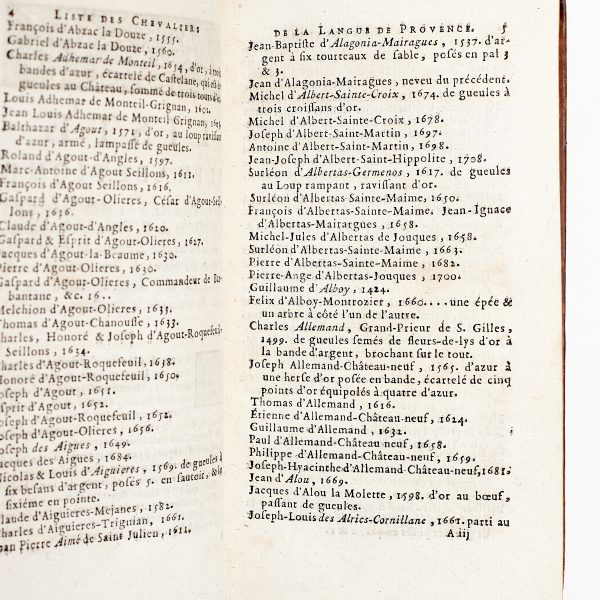 4 LISTE DES CHEVALIERS
François d'Abzac la Douze, 1555.
Gabriel d'Abzac la Douze, 1560.
Charles Adhemar de Monteil, 1654, d'or, à trois
bandes d'azur, écartelé de Castelane, qui est de
gueules au Château, sommé de trois tours d'or.
Louis Adhemar de Monteil-Grignan, 1601.
Jean Louis Adhemar de Monteil Grignan,
Balthazar d'Agout, 1571, d'or, au loup ravissant
d'azur, armé, lampassé de gueules.
Roland d'Agout-d'Angles, 1597.
Marc-Antoine d'Agout Seillons, 1611.
François d'Agout Seillons, 1616.
Gaspard d'Agout-Olieres, César d'Agout-Seil-
lons, 1616.
Claude d'Agout-d'Angles, 1620.
Gaspard & Esprit d'Agout-Olieres, 1627.
Jacques d'Agout-la Beaume, 1630.
Pierre d'Agout-Olieres, 1630.
Gaspard d'Agout-Olieres, Commandeur de Bar-
bantane, &c. 16..
Melchion d'Agout-Olieres, 1633.
Thomas d'Agout-Chanousse, 1633.
Charles, Honoré & Joseph d'Agout-Roquefeuil-
Seillons, 1634.
Charles d'Agout-Roquefeuil, 1638.
Honoré d'Agout-Roquefeuil, 1650.
Joseph d'Agout, 1651.
Esprit d'Agout, 1652.
Joseph d'Agout-Roquefeuil, 1652.
Joseph d'Agout-Olieres, 1656.
Joseph des Aigues, 1649.
Jacques des Aigues, 1684.
Nicolas & Louis d'Aiguieres, 1569. de gueules à
six besans d'argent, posés 5. en sautoir, & le
sixiéme en pointe.
Claude d'Aiguieres-Mejanes, 1582.
Charles d'Aiguieres-Trignian, 1661.
Jean Pierre Aimé de Saint Julien, 1611.
DE LA LANGUE DE PROVENCE. 5
Jean-Baptiste d'Alagonia-Mairagues, 1537. d'ar-
gent à six tourteaux de sable, posés en pal 3
& 3.
Jean d'Alagonia-Mairagues, neveu du précédent.
Michel d'Albert-Sainte-Croix, 1674. de gueules à
trois croissans d'or.
Michel d'Albert-Sainte-Croix, 1678.
Joseph d'Albert-Saint-Martin, 1697.
Antoine d'Albert-Saint-Martin, 1698.
Jean-Joseph d'Albert-Saint-Hippolite, 1708.
Surléon d'Albertas-Germenos, 1617. de gueules
au Loup rampant, ravissant d'or.
Surléon d'Albertas-Sainte-Maime, 1650.
François d'Albertas-Sainte-Maime, Jean-Ignace
d'Albertas-Mairargues, 1658.
Michel-Jules d'Albertas de Jouques, 1658.
Surléon d'Albertas-Sainte-Maime, 1663.
Pierre d'Albertas-Sainte-Maime, 1682.
Pierre-Ange d'Albertas-Jouques, 1700.
Guillaume d'Alboy, 1424.
Felix d'Alboy-Montrozier, 1660.... une épée &
un arbre à côté l'un de l'autre.
Charles Allemand, Grand-Prieur de S. Gilles,
1499. de gueules semés de fleurs-de-lys d'or à
la bande d'argent, brochant sur le tout.
Joseph Allemand-Château-neuf, 1565. d'azur à
une herse d'or posée en bande, écartelé de cinq
points d'or équipolés à quatre d'azur.
Thomas d'Allemand, 1616.
Étienne d'Allemand-Château-neuf, 1624.
Guillaume d'Allemand, 1632.
Paul d'Allemand-Château-neuf, 1658.
Philippe d'Allemand-Château-neuf, 1659.
Joseph-Hyacinthe d'Allemand-Château-neuf, 1681.
Jean d'Alou, 1669.
Jacques d'Alou la Molette, 1598. d'or au bœuf,
passant de gueules.
Joseph-Louis des Alrics-Cornillane, 1661. parti au
A iij